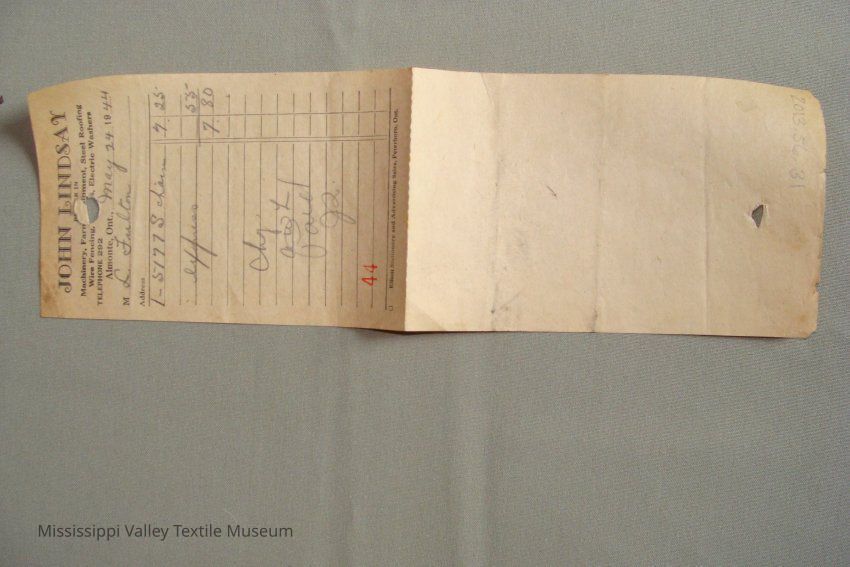 JOHN LINDSAY
DEALER IN
Machinery, Farm Equipment, Steel Roofing
Wire Fencing, Electric Washers
TELEPHONE 292
Almonte, Ont., May 24 1944
M L. Fulton
Address
1- S777S chain 7.25
express 55
7.80
Chg.
44
Stationery and Advertising Sales, Peterboro, Ont.
Mississippi Valley Textile Museum